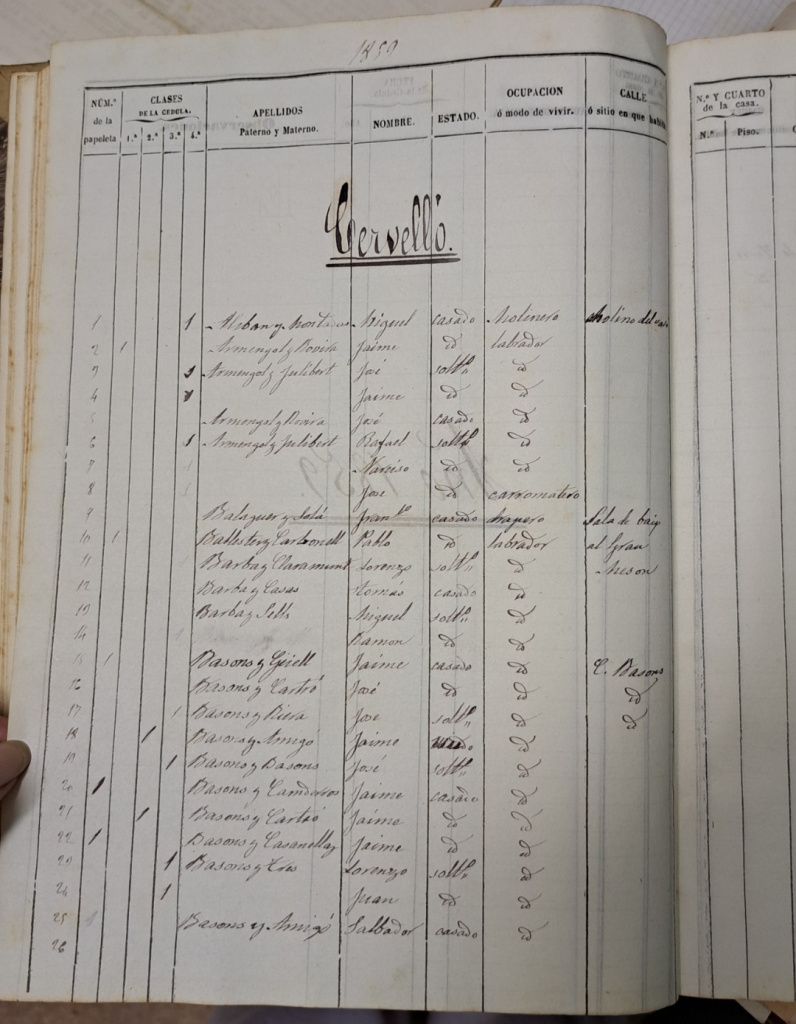 1850
NÚM.º de la papeleta
CLASES DE LA CEDULA.
1.ª 2.ª 3.ª 4.ª
APELLIDOS Paterno y Materno.
NOMBRE.
ESTADO.
OCUPACION ó modo de vivir.
CALLE ó sitio en que habita
N.º Y CUARTO de la casa.
N.º Piso.
Cervelló.
1 1 Miguel casado Molinero Molino del
2 1 Armengol y Rovira Jaime id labrador
3 1 Armengol y Julibert José solt.º id
4 1 Jaime id id
5 Armengol y Rovira José casado id
6 1 Armengol y Julibert Rafael solt.º id
7 Narciso id id
8 1 José id carromatero
9 Balaguer y Solá Fran.co casado drapero Sala de baix
10 1 Ballester y Carbonell Pablo id labrador al Gran
11 Barba y Claramunt Lorenzo solt.º id Meson
12 Barba y Casas tomás casado id
13 Barba y Miguel solt.º id
14 Ramon id id
15 1 Basons y Güell Jaime casado id C. Basons
16 Basons y Castró José id id id
17 1 Basons y Riera Jose solt.º id id
18 1 Basons y Amigó Jaime id
19 1 Basons y Basons José solt.º id
20 1 Basons y Jaime casado id
21 1 Basons y Castró Jaime id id
22 1 Basons y Casanellas Jaime id id
23 1 Basons y Lorenzo solt.º id
24 1 Juan id id
25 1 Basons y Amigó Salbador casado id
26